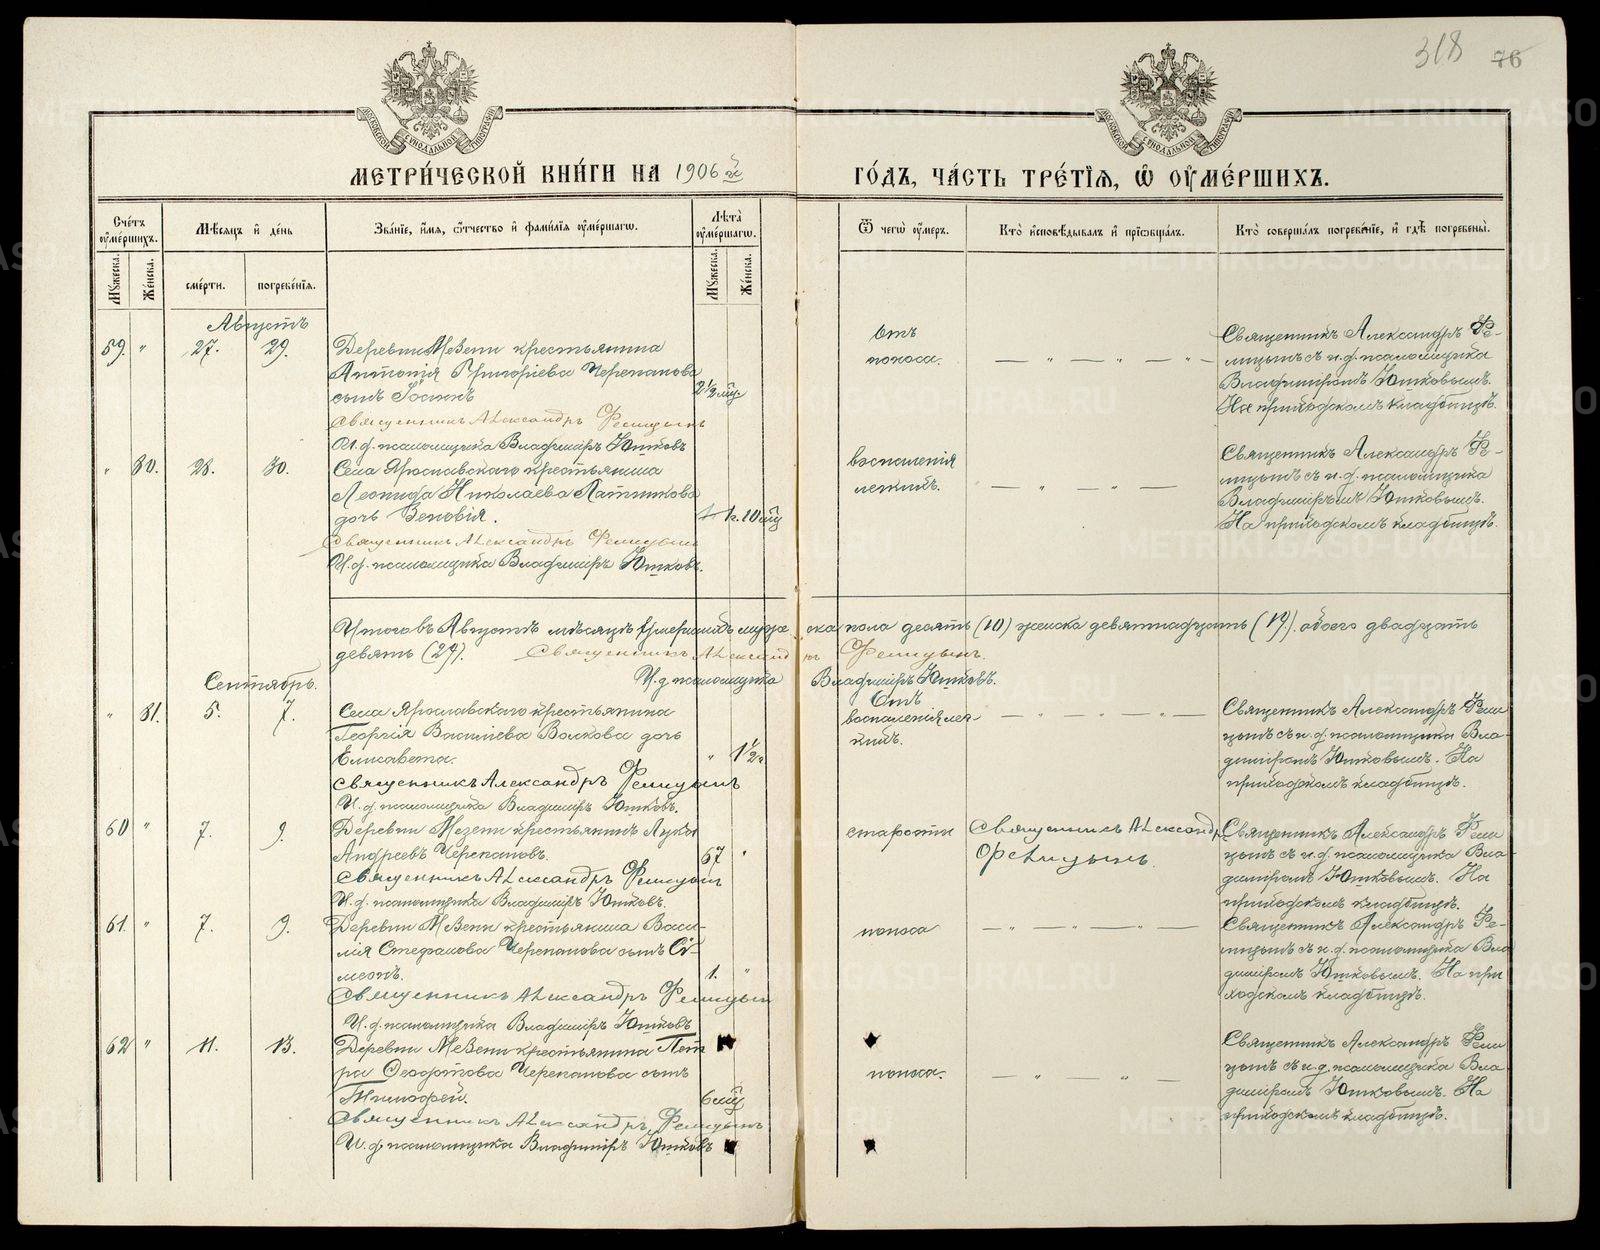 318 76
МЕТРИ́ЧЕСКОЙ КНИ́ГИ НА 1906й ГО́ДЪ, ЧА́СТЬ ТРЕ́ТІѦ, Ѡ ОУМЕ́РШИХЪ.
Сче́тъ оуме́ршихъ.
Мѣ́сяцъ и́ де́нь
Зва́ніе, и́мя, ѻ́тчество и́ фами́лія оуме́ршагѡ.
Лѣ́та оуме́ршагѡ.
Ѿ чегѡ̀ оу́меръ.
Кто̀ и́сповѣ́дывалъ и́ пріѡбща́лъ.
Кто̀ соверша́лъ погребе́ніе, и́ гдѣ̀ погребены̀.
Му́жеска.
Же́нска.
сме́рти.
погребе́нія.
Му́жеска.
Же́нска.
Августъ
59. " 27. 29.
Деревни Мезени крестьянина
Антонія Григоріева Черепанова
сынъ Іоаннъ
2 1/2 мц.
Священникъ Александръ Фелицынъ
И. д. псаломщика Владиміръ Юшковъ
Отъ
поноса.
— " — " — " —
Священникъ Александръ Фе-
лицынъ съ и. д. псаломщика
Владиміромъ Юшковымъ.
На приходскомъ кладбищѣ.
" 80. 28. 30.
Села Ярославскаго крестьянина
Леонида Николаева
дочь Зеновія.
1 г. 10 мц
Священникъ Александръ Фелицынъ
И. д. псаломщика Владиміръ Юшковъ.
воспаленія
легкихъ.
— " — " —
Священникъ Александръ Фе-
лицынъ съ и. д. псаломщика
Владиміромъ Юшковымъ.
На приходскомъ кладбищѣ.
Итого въ Августѣ мѣсяцѣ умершихъ мужеска пола десять (10) женска девятнадцать (19). обоего двадцать
девять (29). Священникъ Александръ Фелицынъ.
И. д. псаломщика Владиміръ Юшковъ.
Сентябрь.
" 81. 5. 7.
Села Ярославскаго крестьянина
Георгія Васильева Волкова дочь
Елисавета.
" 1 1/2
Священникъ Александръ Фелицынъ
И. д. псаломщика Владиміръ Юшковъ.
Отъ
воспаленія лег-
кихъ.
— " — " —
Священникъ Александръ Фели
цынъ съ и. д. псаломщика Вла-
диміромъ Юшковымъ. На
приходскомъ кладбищѣ.
60 " 7. 9.
Деревни Мезени крестьянинъ Лука
Андреевъ Черепановъ.
67 "
Священникъ Александръ Фелицынъ
И. д. псаломщика Владиміръ Юшковъ.
старости
Священникъ Александръ
Фелицынъ.
Священникъ Александръ Фели
цынъ съ и. д. псаломщика Вла-
диміромъ Юшковымъ. На
приходскомъ кладбищѣ.
61. " 7. 9.
Деревни Мезени крестьянина Васи-
лія Стефанова Черепанова сынъ Сі-
меонъ.
1. "
Священникъ Александръ Фелицынъ
И. д. псаломщика Владиміръ Юшковъ
поноса
— " — " — " —
Священникъ Александръ Фе-
лицынъ съ и. д. псаломщика Вла
диміромъ Юшковымъ. На при
ходскомъ кладбищѣ.
62 " 11. 13.
Деревни Мезени крестьянина Пет
ра Ѳеодотова Черепанова сынъ
Тимофей.
6 мц
Священникъ Александръ Фелицынъ
И. д. псаломщика Владиміръ Юшковъ
поноса.
— " — " —
Священникъ Александръ Фели
цынъ съ и. д. псаломщика Вла
диміромъ Юшковымъ. На
приходскомъ кладбищѣ.